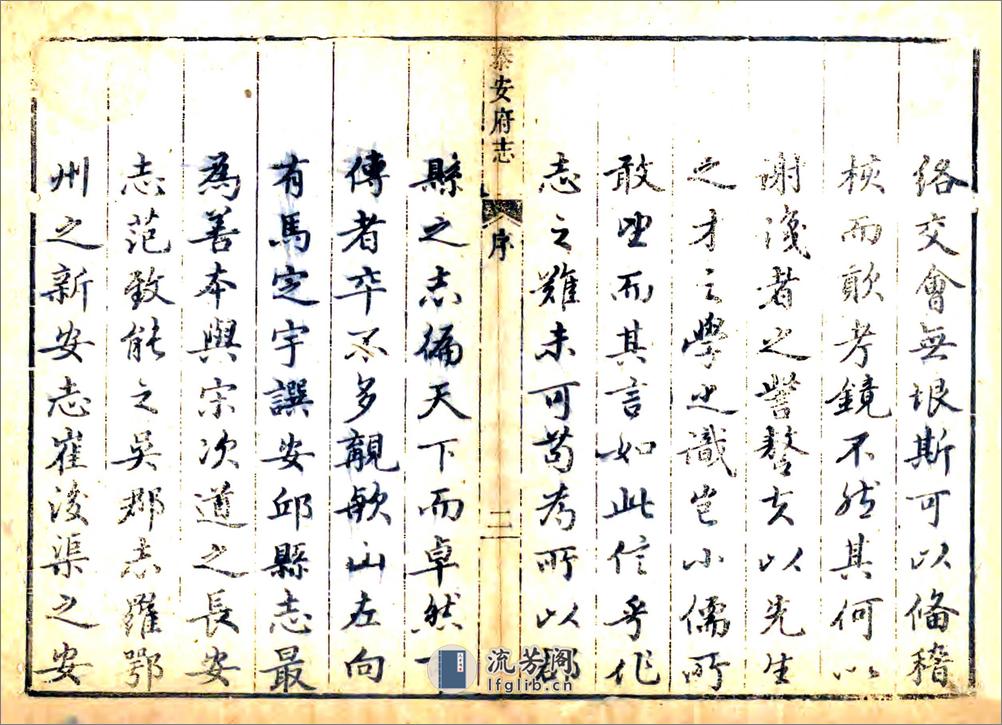 絡交會無垠斯可以俻稽
核而考鏡不然其何以
謝淺者之訾謷以先生
之才之學之識豈小儒所
敢望而其言如此信乎作
志之難未可苟為所以郡
泰安府志 序 二
縣之志徧天下而卓然
傳者卒不多覯歟山左向
有馬定宇譔安邱縣志最
為善本與宋次道之長安
志范致能之吳郡志羅鄂
州之新安志崔後渠之安
流芳阁
lfglib.cn